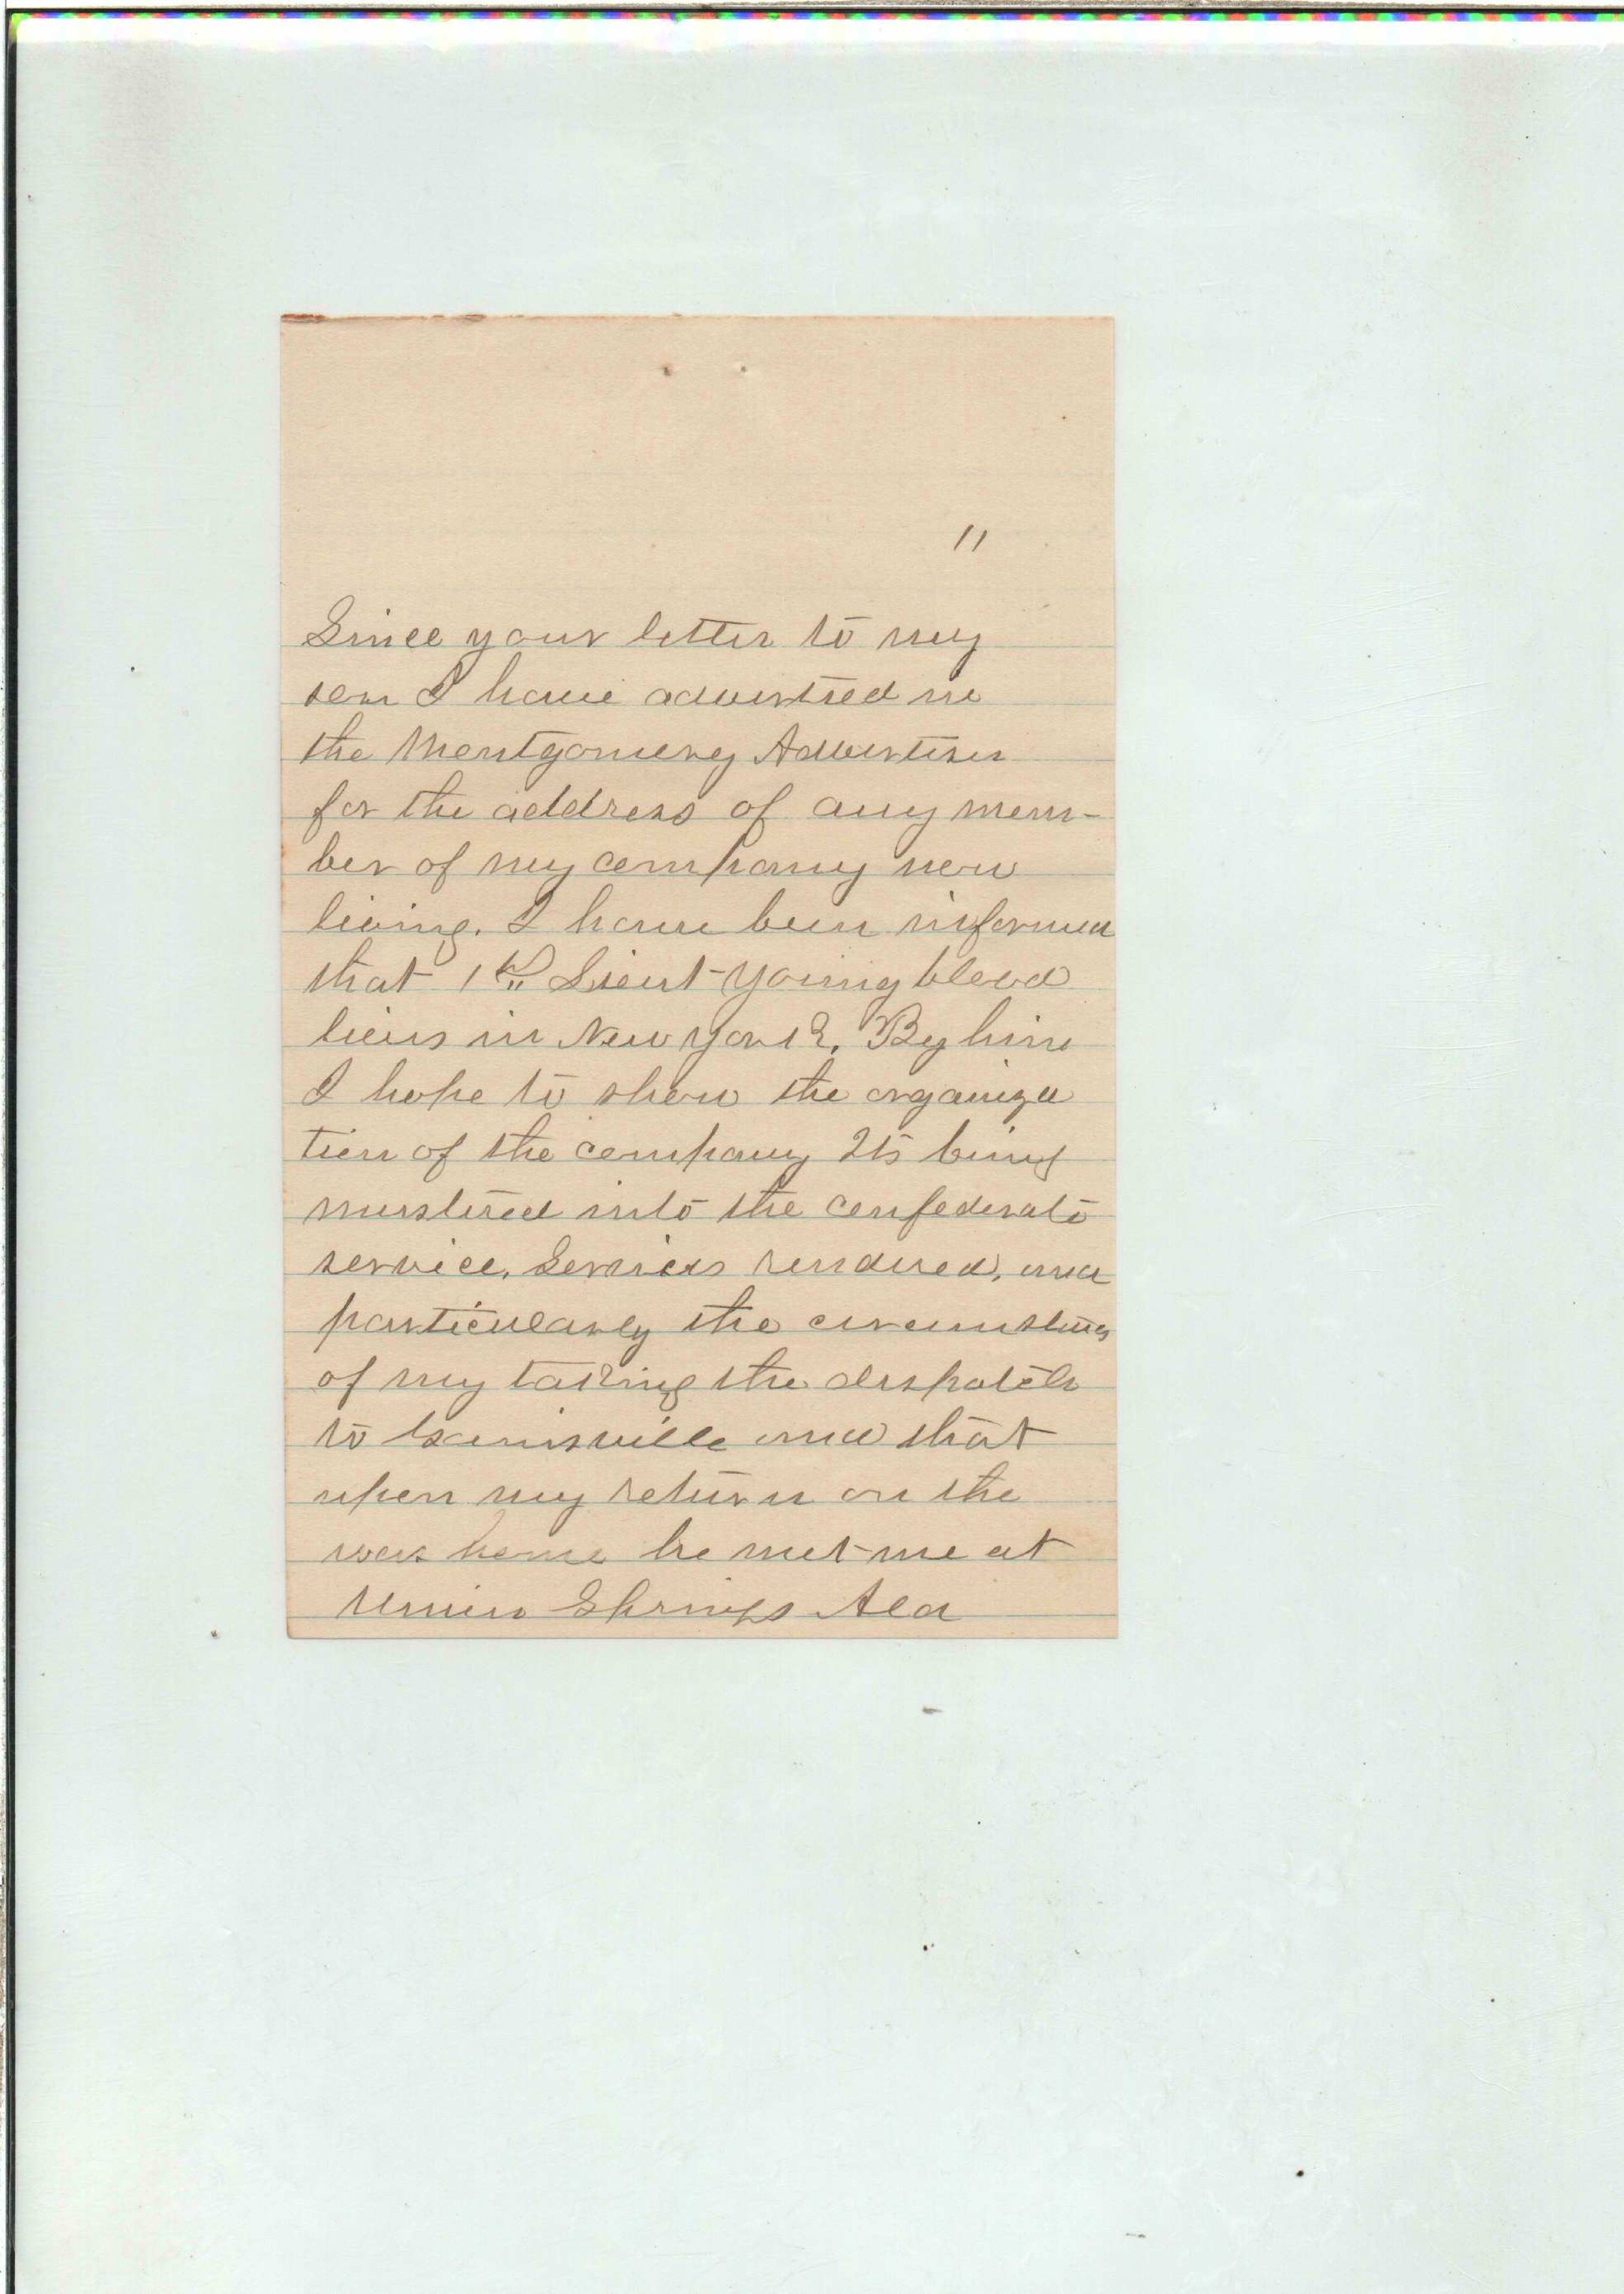 11
Since your letter to my
son I have advertised in
the Montgomery Advertiser
for the address of any mem-
ber of my company now
living. I have been informed
that 1st Lieut Youngblood
lives in New York. By him
I hope to show the organiza
tion of the company Its being
mustered into the confederate
service, Services rendered, and
particularly the circumstances
of my taking the dispatch
to Gainsville and that
upon my return on the
way home he met me at
Union Springs Ala